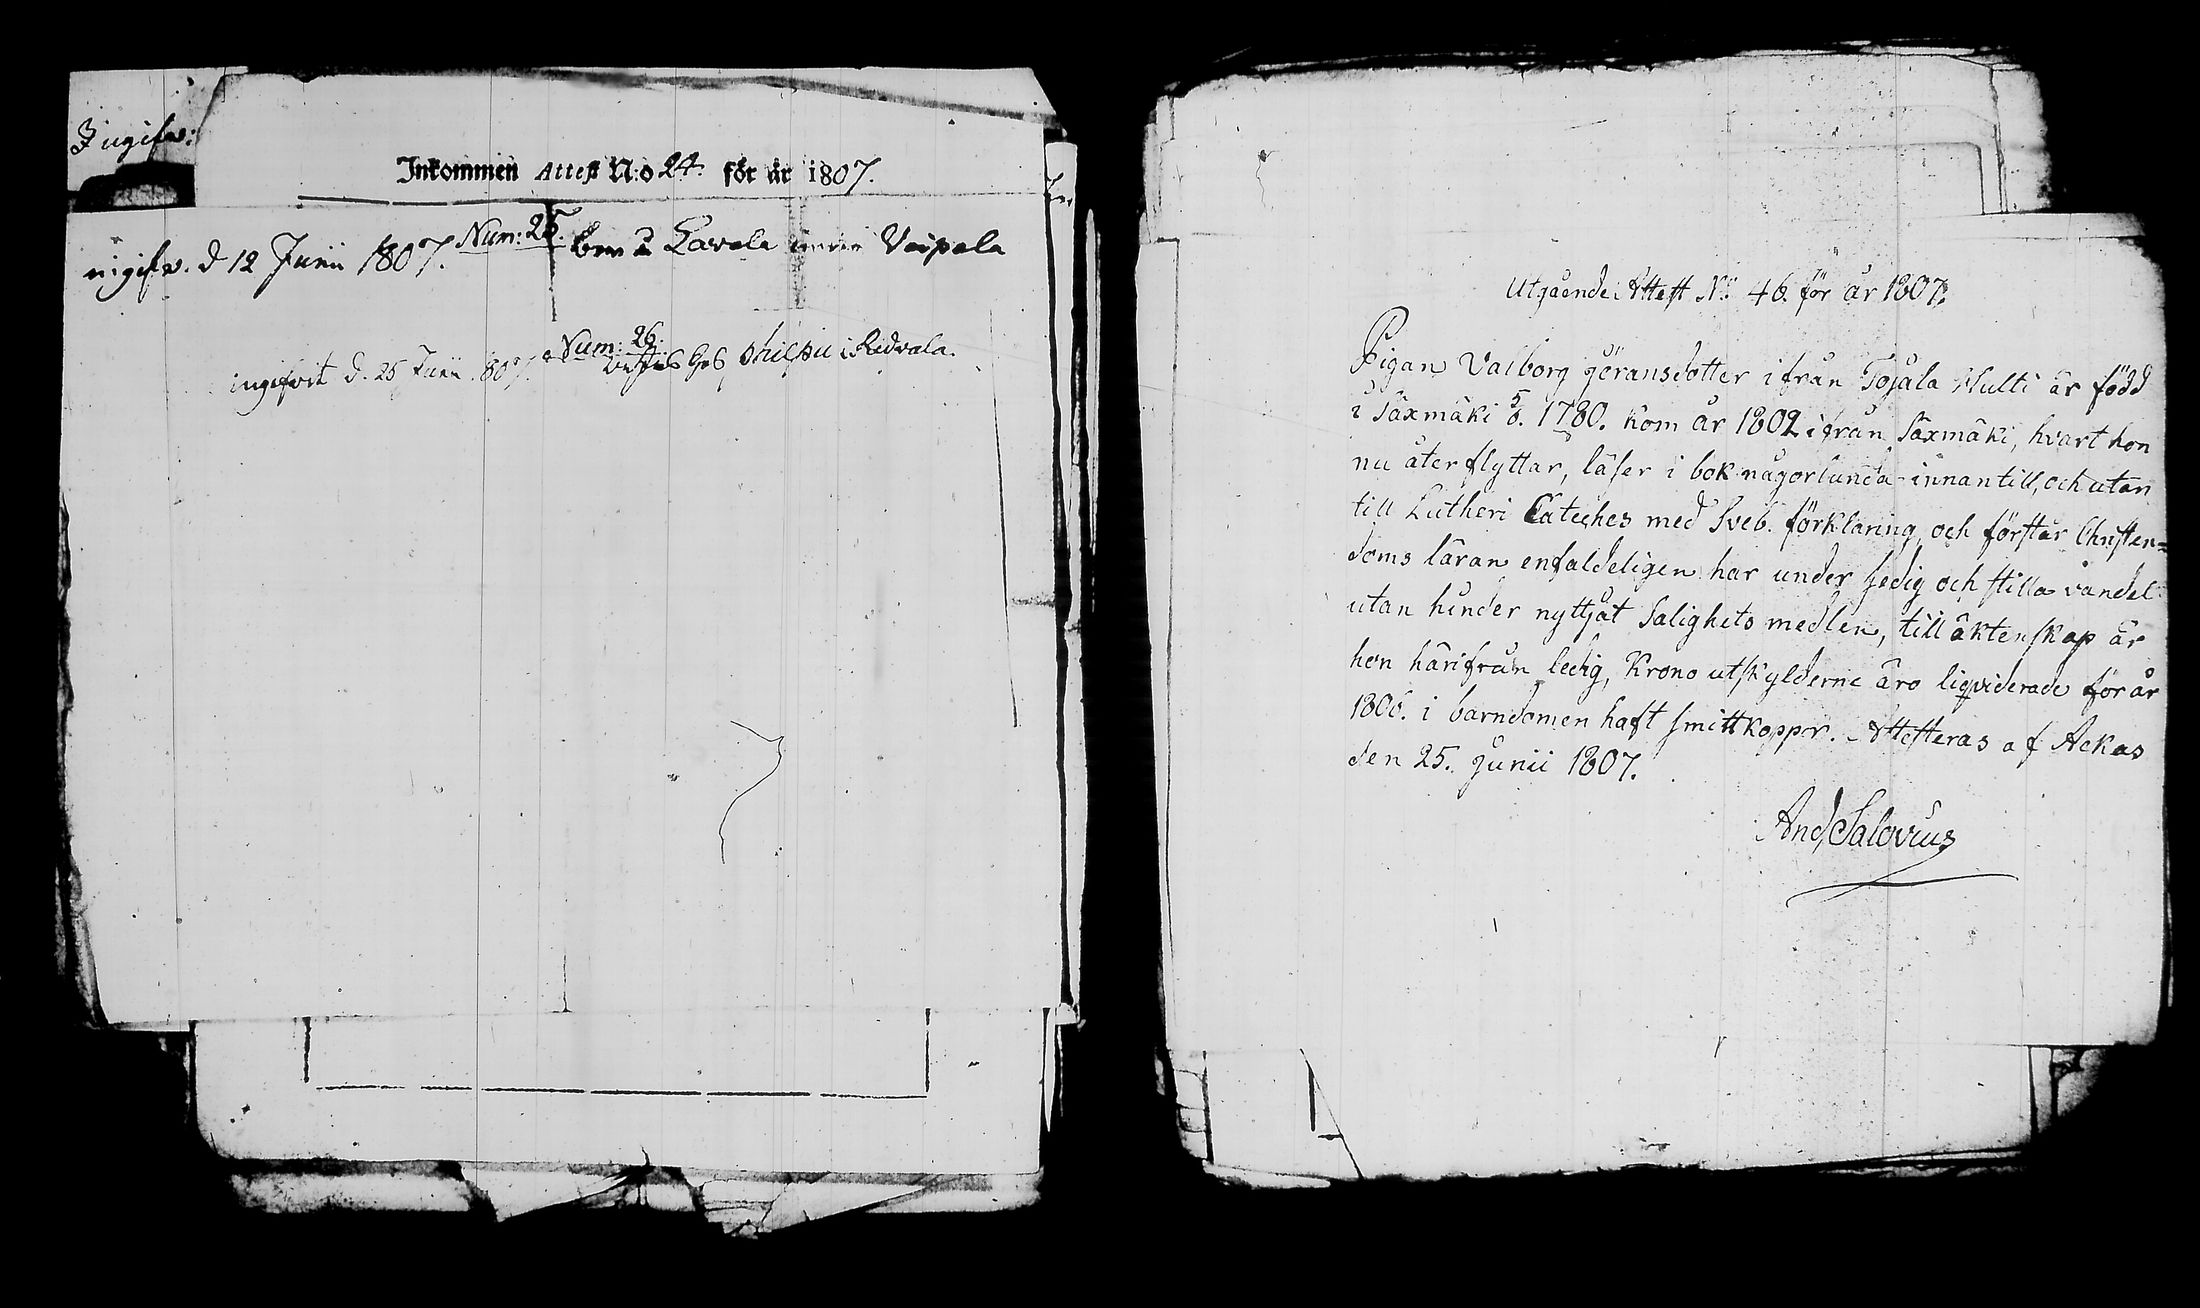 Ingifv:
Inkommen Attest N:o 24. för år 1807.
Num: 25.
ingifv. d 12 Junii 1807. Lavala Voipala
Num: 26.
ingifvit d. 25 Junii 1807. i Ridvala.
Utgående Attest No 46. för år 1807.
Pigan Valborg Göransdotter ifrån Tojala Multi är född
i Säxmäki 5/6. 1780. Kom år 1802 ifrån Säxmäki, hvart hon
nu återflyttar, läser i bok någorlunda innantill, och utan
till Lutheri Cateches med Sveb. förklaring, och förstår Christen=
doms läran enfaldeligen har under sedig och stilla vandel
utan hinder nyttjat Salighets medlen, till äktenskap är
hon härifrån ledig, Krono utskylderne äro liqviderade för år
1806. i barndomen haft smittkoppor. Attesteras af Ackas
den 25. Junii 1807.
And, Salovius